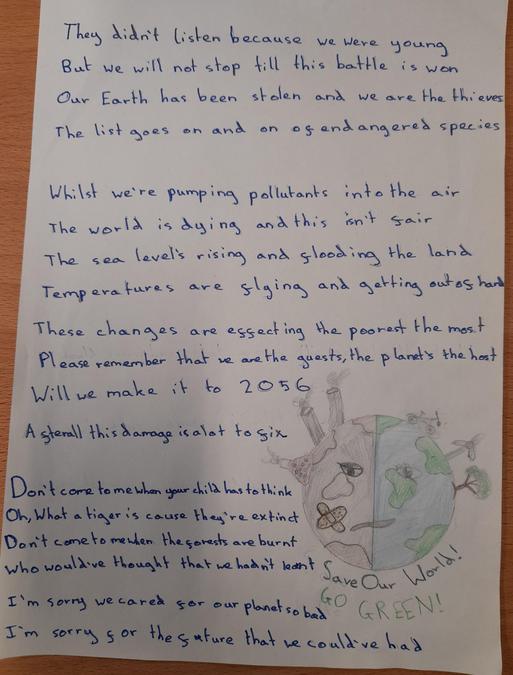 They didn't listen because we were young
But we will not stop till this battle is won
Our Earth has been stolen and we are the thieves
The list goes on and on of endangered species
Whilst we're pumping pollutants into the air
The world is dying and this isn't fair
The sea level's rising and flooding the land
Temperatures are flying and getting out of hand
These changes are effecting the poorest the most
Please remember that we are the guests, the planet's the host
Will we make it to 2056
After all this damage is a lot to fix
Don't come to me when your child has to think
Oh, What a tiger is cause they're extinct
Don't come to me when the forests are burnt
Who would've thought that we hadn't learnt
I'm sorry we cared for our planet so bad
I'm sorry for the future that we could've had
Save Our World!
GO GREEN!